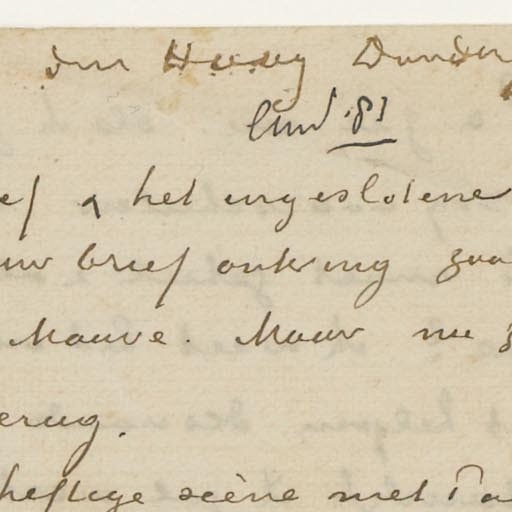 den Haag Donder
Eind '81
ef & het ingeslotene
uw brief ontving zoo
Mauve. Maar nu z
erug.
heftige scène met Pa